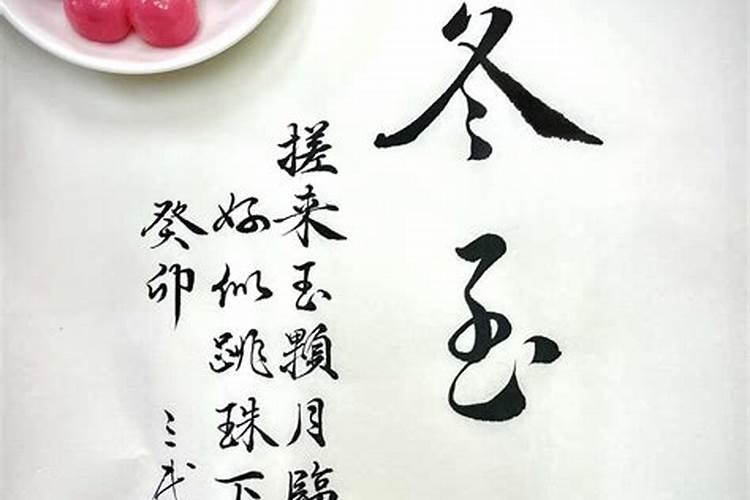 冬至
搓来玉颗月臨
好似跳珠下
癸卯 三